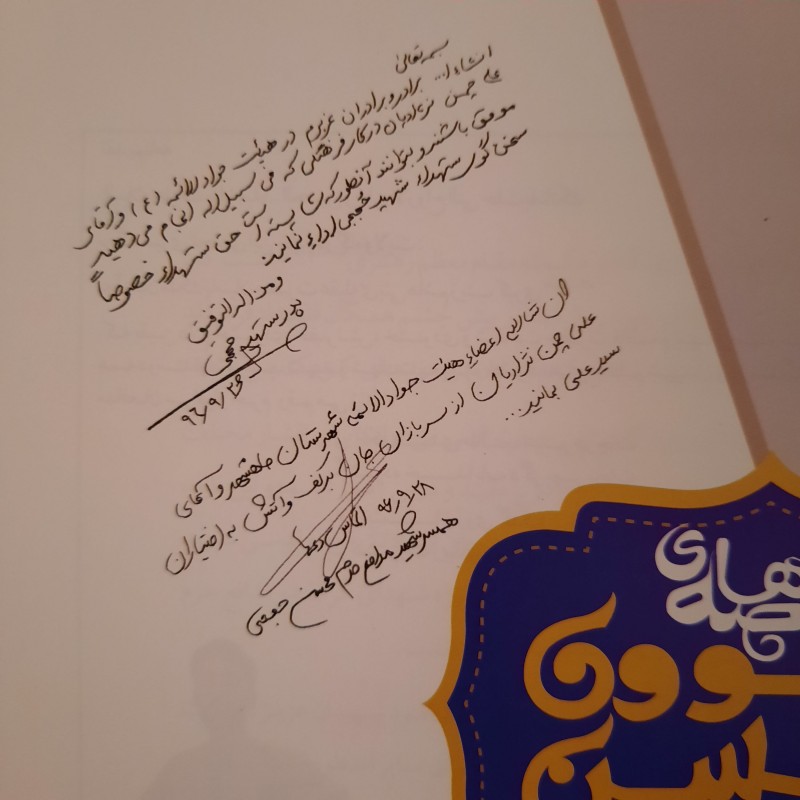 بسمه تعالی
انشاءا... برادر و برادران عزیزم در هیئت جوادالائمه (ع) و آقای
علی چمن نژادیان در کار فرهنگی که فی سبیل اله انجام می‌دهید
موفق باشند و بتوانند آنطور که شایسته است حق شهداء خصوصاً
سخن‌گوی شهداء شهید حججی اداء نمایند
و من اله التوفیق
پدر شهید حججی
۹۶/۹/۲۶
ان شاءالله اعضاء هیئت جوادالائمه شهرستان ماهشهر و آقای
علی چمن نژادیان از سربازان جان برکف و آتش به اختیاران
سید علی بمانید...
۹۶/۹/۲۸ التماس دعا
همسر شهید مدافع حرم محسن حججی
های